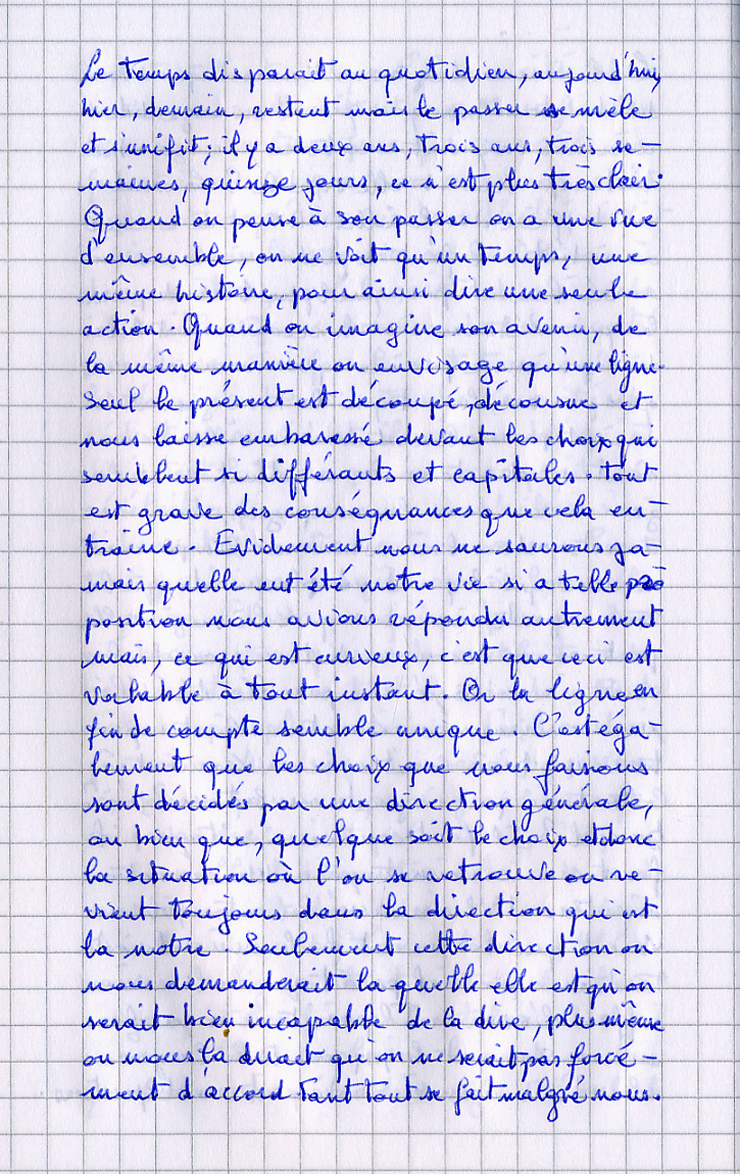 Le temps disparait au quotidien, aujourd'hui,
hier, demain, restent mais le passer se mèle
et s'unifit ; il y a deux ans, trois ans, trois se-
maines, quinze jours, ce n'est plus très clair.
Quand on pense à son passer on a une vue
d'ensemble, on ne voit qu'un temps, une
même histoire, pour ainsi dire une seule
action. Quand on imagine son avenir, de
la même manière on envisage qu'une ligne.
Seul le présent est découpé, décousue et
nous laisse embarassé devant les choix qui
semblent si différants et capitales. tout
est grave des conséquances que cela en-
traine. Evidement nous ne saurons ja-
mais quelle eut été notre vie si a telle pro
position nous avions répondu autrement
mais, ce qui est curieux, c'est que ceci est
valable à tout instant. Or la ligne en
fin de compte semble unique. C'est éga-
lement que les choix que nous faisions
sont décidés par une direction générale,
ou bien que, quelque soit le choix et donc
la situation où l'on se retrouve on re-
vient toujours dans la direction qui est
la notre. Seulement cette direction on
nous demanderait la quelle elle est qu'on
serait bien incapable de la dire, plus même
on nous la dirait qu'on ne serait pas forcé-
ment d'accord tant tout se fait malgré nous.